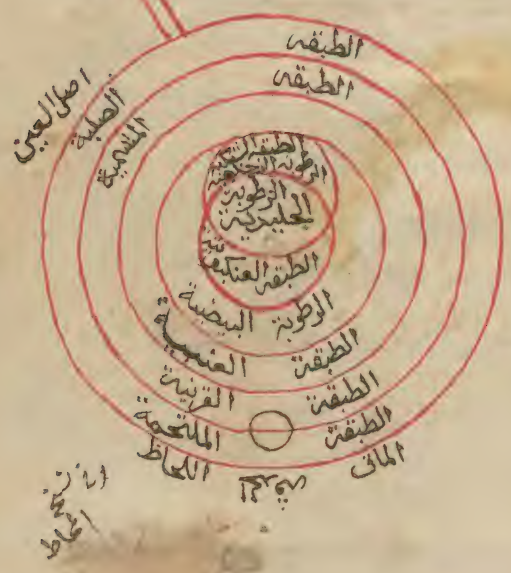 الطبقة
الطبقة
اصل العين
الصلبة
المشيمية
الطبقة الشبكية
الرطوبة الزجاجية
الرطوبة
الجليدية
الطبقة العنكبوتية
الرطوبة البيضية
الطبقة العنبية
الطبقة القرنية
الطبقة الملتحمة
الماق
اللحاظ